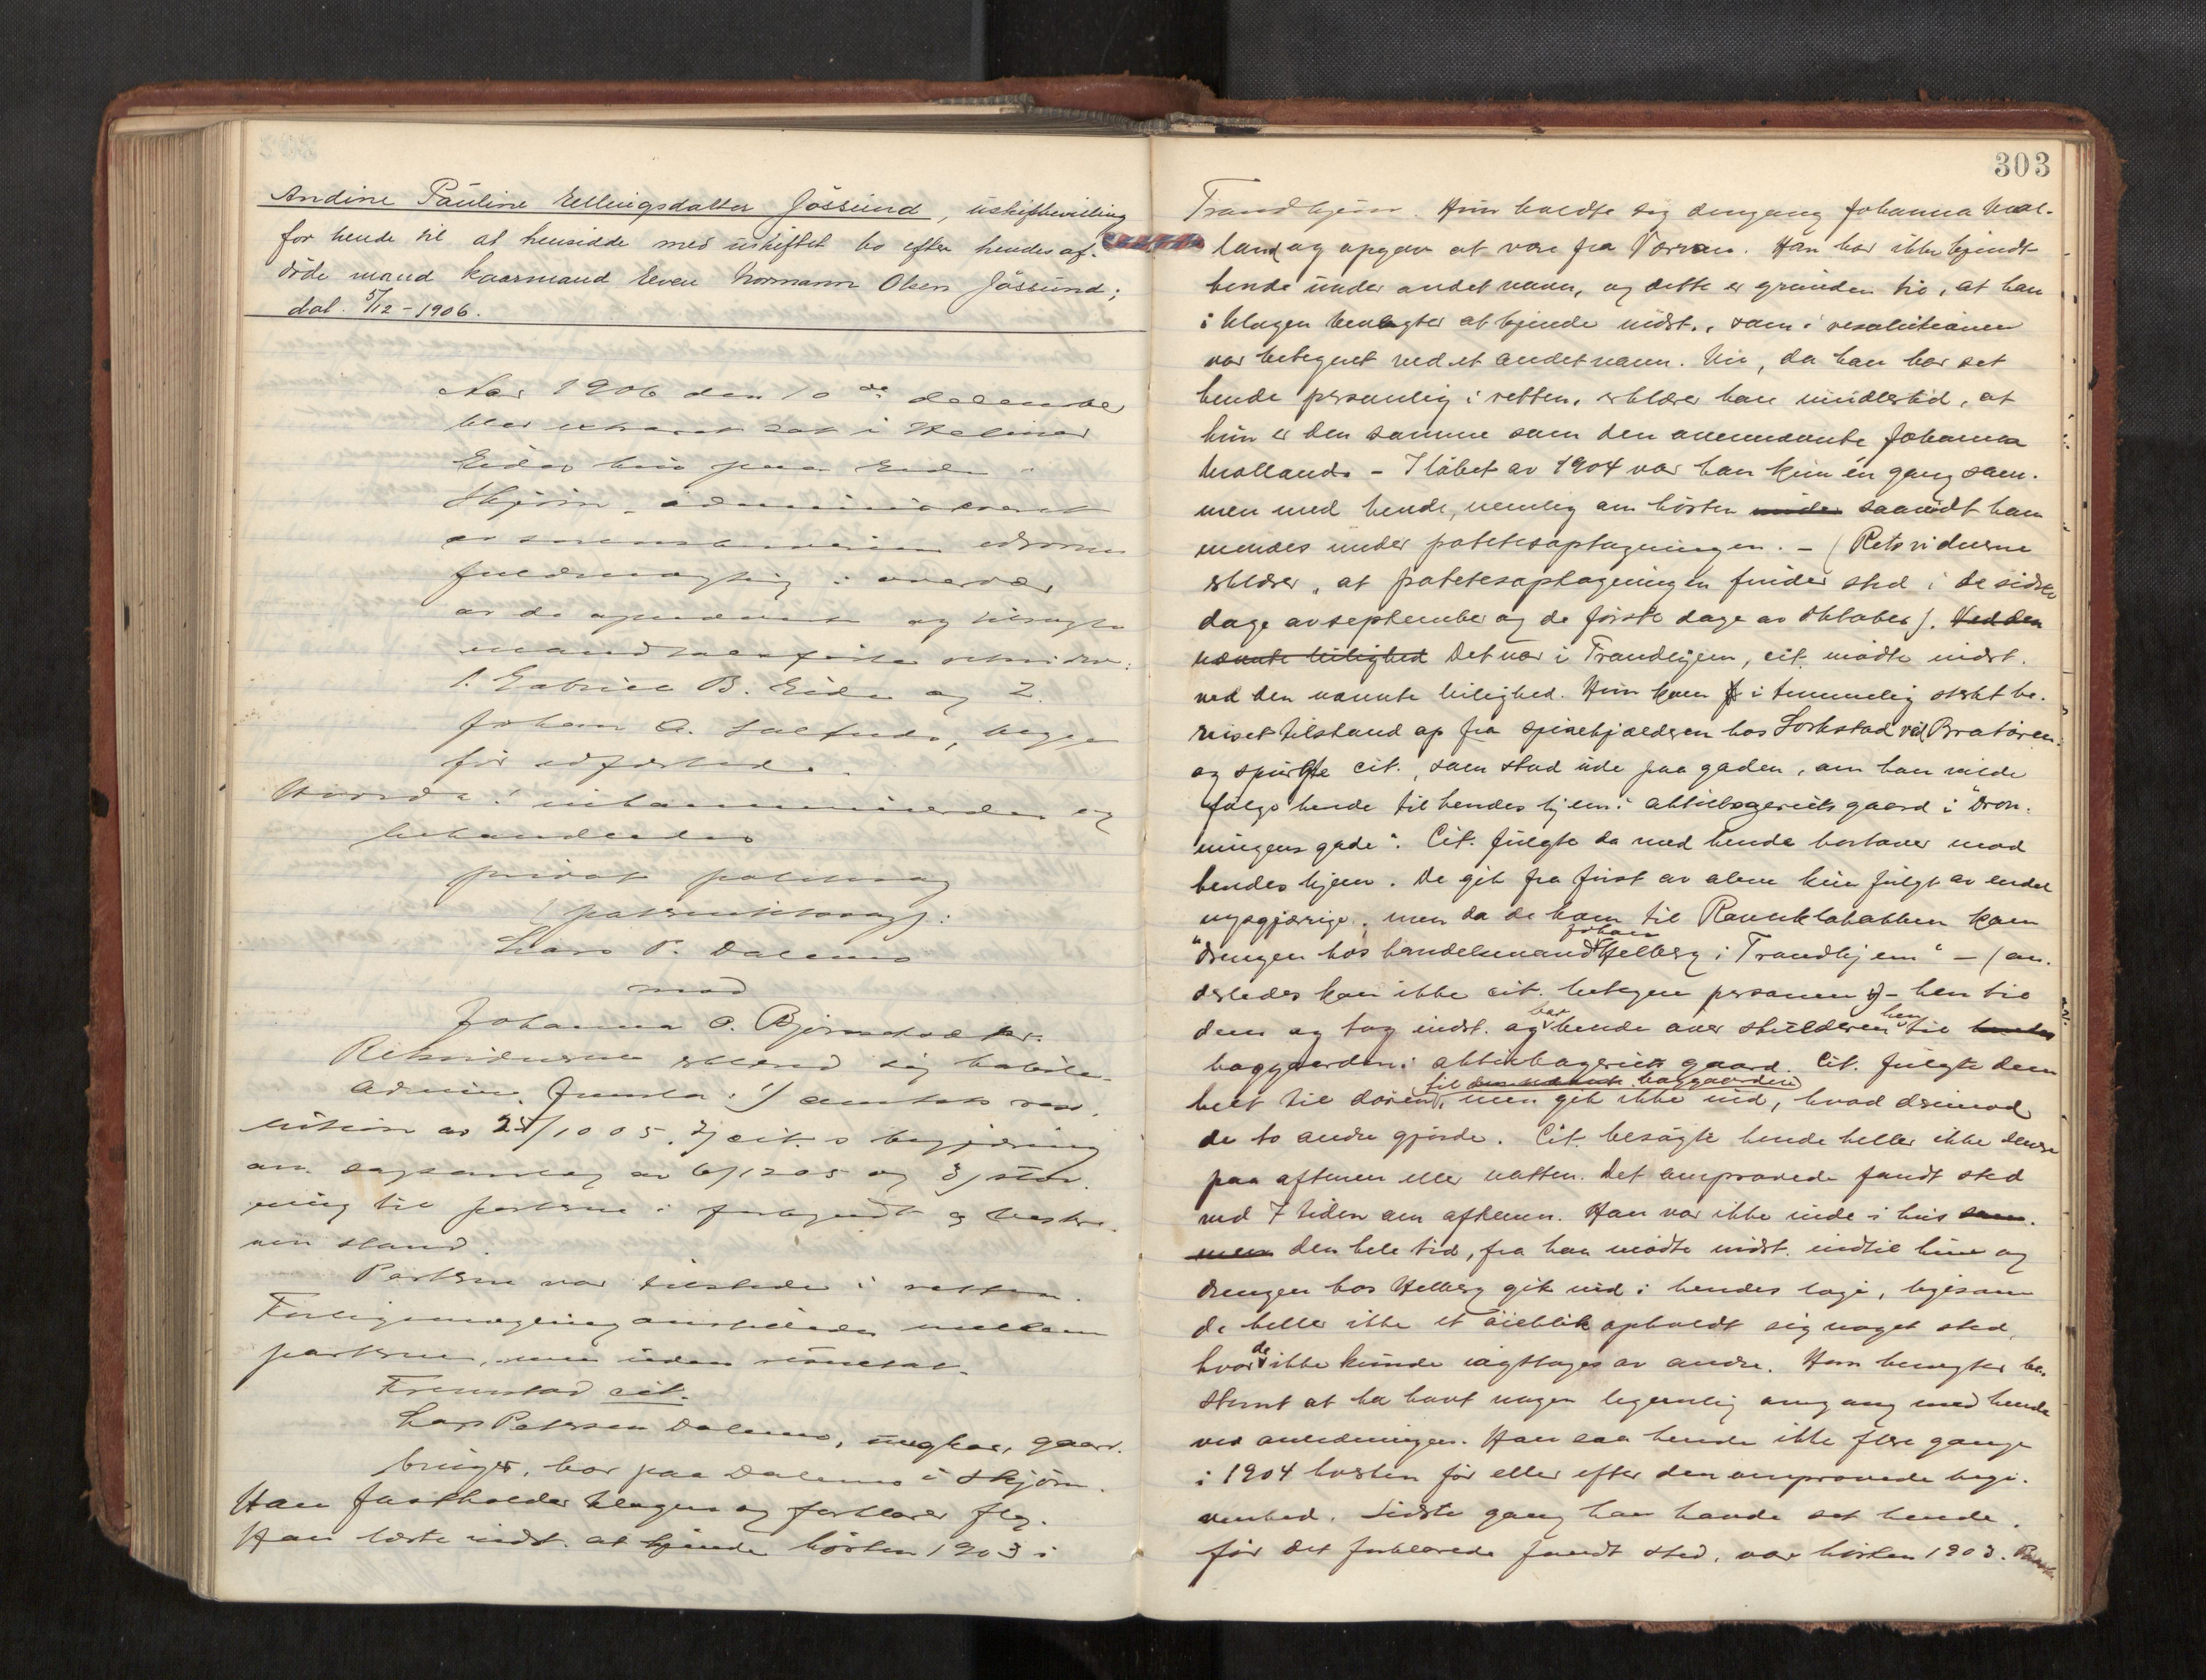 Andine Pauline Ellingsdatter Jössund, uskiftbevilling
for hende til at hensidde med uskiftet bo efter hendes af-
döde mand kaarmand Even Normann Olsen Jössund;
dat. 5/12-1906.
Aar 1906 den 10de december
blev extraret sat i
Eides hus paa Eide i
Skjörn, administreret
av sorenskriverens edsvorne
fuldmægtig i overvær
av de opnævnte og tilsagte
mandtalsførte retsvidner:
1. Gabriel B. Eide og 2.
Johan A. , begge
før edfæstede.
Hvorda! inkaminerdes og
behandledes
privat politisag
(paternitetssag):
Lars P. Dalemo
mod
Johanna O. Bjørnsdatter.
Retsvidnerne erklæred sig habile.
Admin. fremla: 1) amtets reso-
lution av 25/10 05, 2) cit.s begjæring
om sagsanlæg av 6/12 05 og 3) stev-
ning til parterne i forkyndt
stand.
Parterne var tilstede i retten.
Forligsmægling anstilledes mellem
parterne, men uden resultat.
Fremstod cit.
Lars Petersen Dalemo, ungkar, gaard-
bruger, bor paa Dalemo i Skjörn.
Han fastholder klagen og forklarer flg.
Han lærte indst. at kjende hösten 1903 i
303
Trondhjem. Hun kaldte sig dengang Johanna Mol-
land og opgav at være fra Værran. Han har ikke kjendt
hende under andet navn, og dette er grunden til, at han
i klagen benægter at kjende indst., som i resolutionen
var betegnet ved et andet navn. Nu, da han har set
hende personlig i retten, erklærer han imidlertid, at
hun er den samme som den ovennævnte Johanna
Molland. - I löbet av 1904 var han kun én gang sam-
men med hende, nemlig om hösten saavidt han
mindes under potetesoptagningen. - (Retsvidnerne
erklærer, at potetesoptagningen finder sted i de sidste
dage av september og de förste dage av oktober). Ved den
nævnte leilighed Det var i Trondhjem, cit. mödte indst.
ved den nævnte leilighed. Hun kom i temmelig sterkt be-
ruset tilstand op fra spisekjælderen hos Lorkstad ved Bratören
og spurgte cit., som stod ude paa gaden, om han vilde
fölge hende til hendes hjem i aktiebageriets gaard i "Dron-
ningens gade". Cit. fulgte da med hende bortover mod
hendes hjem. De gik fra först av alene kun fulgt av endel
nysgjærrige, men da de kom til Ravnklobakken kom
"drengen hos handelsmand Johan Helberg i Trondhjem" - (an-
derledes kan ikke cit. betegne personen) - hen til
dem og tog indst. og bar hende over skulderen hen til
baggaarden i aktiebageriets gaard. Cit. fulgte dem
helt til dören til baggaarden, men gik ikke ind, hvad derimod
de to andre gjorde. Cit. besögte hende heller ikke senere
paa aftenen eller natten. Det omprovede fandt sted
ved 7 tiden om aftenen. Han var ikke inde i hus
den hele tid, fra han mödte indst. indtil hun og
drengen hos Helberg gik ind i hendes logi, ligesom
de heller ikke et öieblik opholdt sig noget sted,
hvor de ikke kunde iagttages av andre. Han benegter be-
stemt at ha havt nogen legemlig omgang med hende
ved anledningen. Han saa hende ikke flere gange
i 1904 hösten för eller efter den omprovede begi-
venhed. Sidste gang han havde set hende,
för det forklarede fandt sted, var hösten 1903.